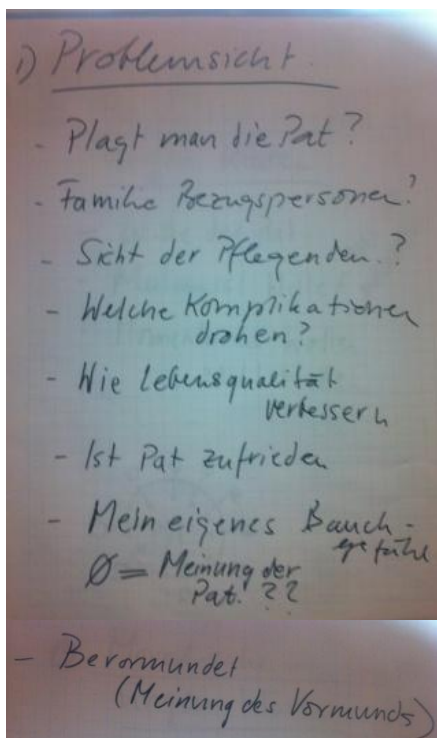 1) Problemsicht.
- Plagt man die Pat?
- Familie Bezugspersonen?
- Sicht der Pflegenden.?
- Welche Komplikationen
drohen?
- Wie Lebensqualität
verbessern
- Ist Pat zufrieden
- Mein eigenes Bauch-
gefühl
Ø = Meinung der
Pat. ??
- Bevormundet
(Meinung des Vormunds)